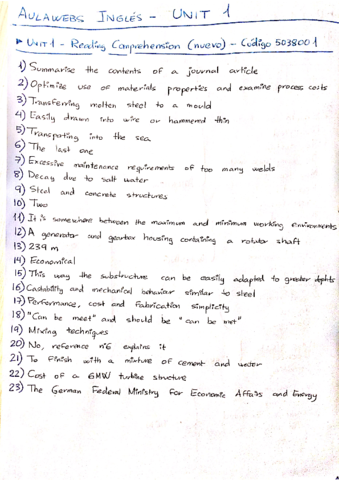 AULAWEBS INGLÉS - UNIT 1
UNIT 1 - Reading Comprehension (nuevo) - Código 5038001
1) Summarise the contents of a journal article
2) Optimise use of materials properties and examine process costs
3) Transferring molten steel to a mould
4) Easily drawn into wire or hammered thin
5) Transpoting into the sea
6) The last one
7) Excessive maintenance requirements of too many welds
8) Decay due to salt water
9) Steel and concrete structures
10) Two
11) It is somewhere between the maximum and minimum working environments
12) A generator and gearbox housing containing a rotator shaft
13) 239 m
14) Economical
15) This way the substructure can be easily adapted to greater depths
16) Castability and mechanical behaviour similar to steel
17) Performance, cost and fabrication simplicity
18) "Can be meet" and should be "can be met"
19) Mixing techniques
20) No, reference nº6 explains it
21) To finish with a mixture of cement and water
22) Cost of a 6MW turbine structure
23) The German Federal Ministry for Economic Affairs and Energy